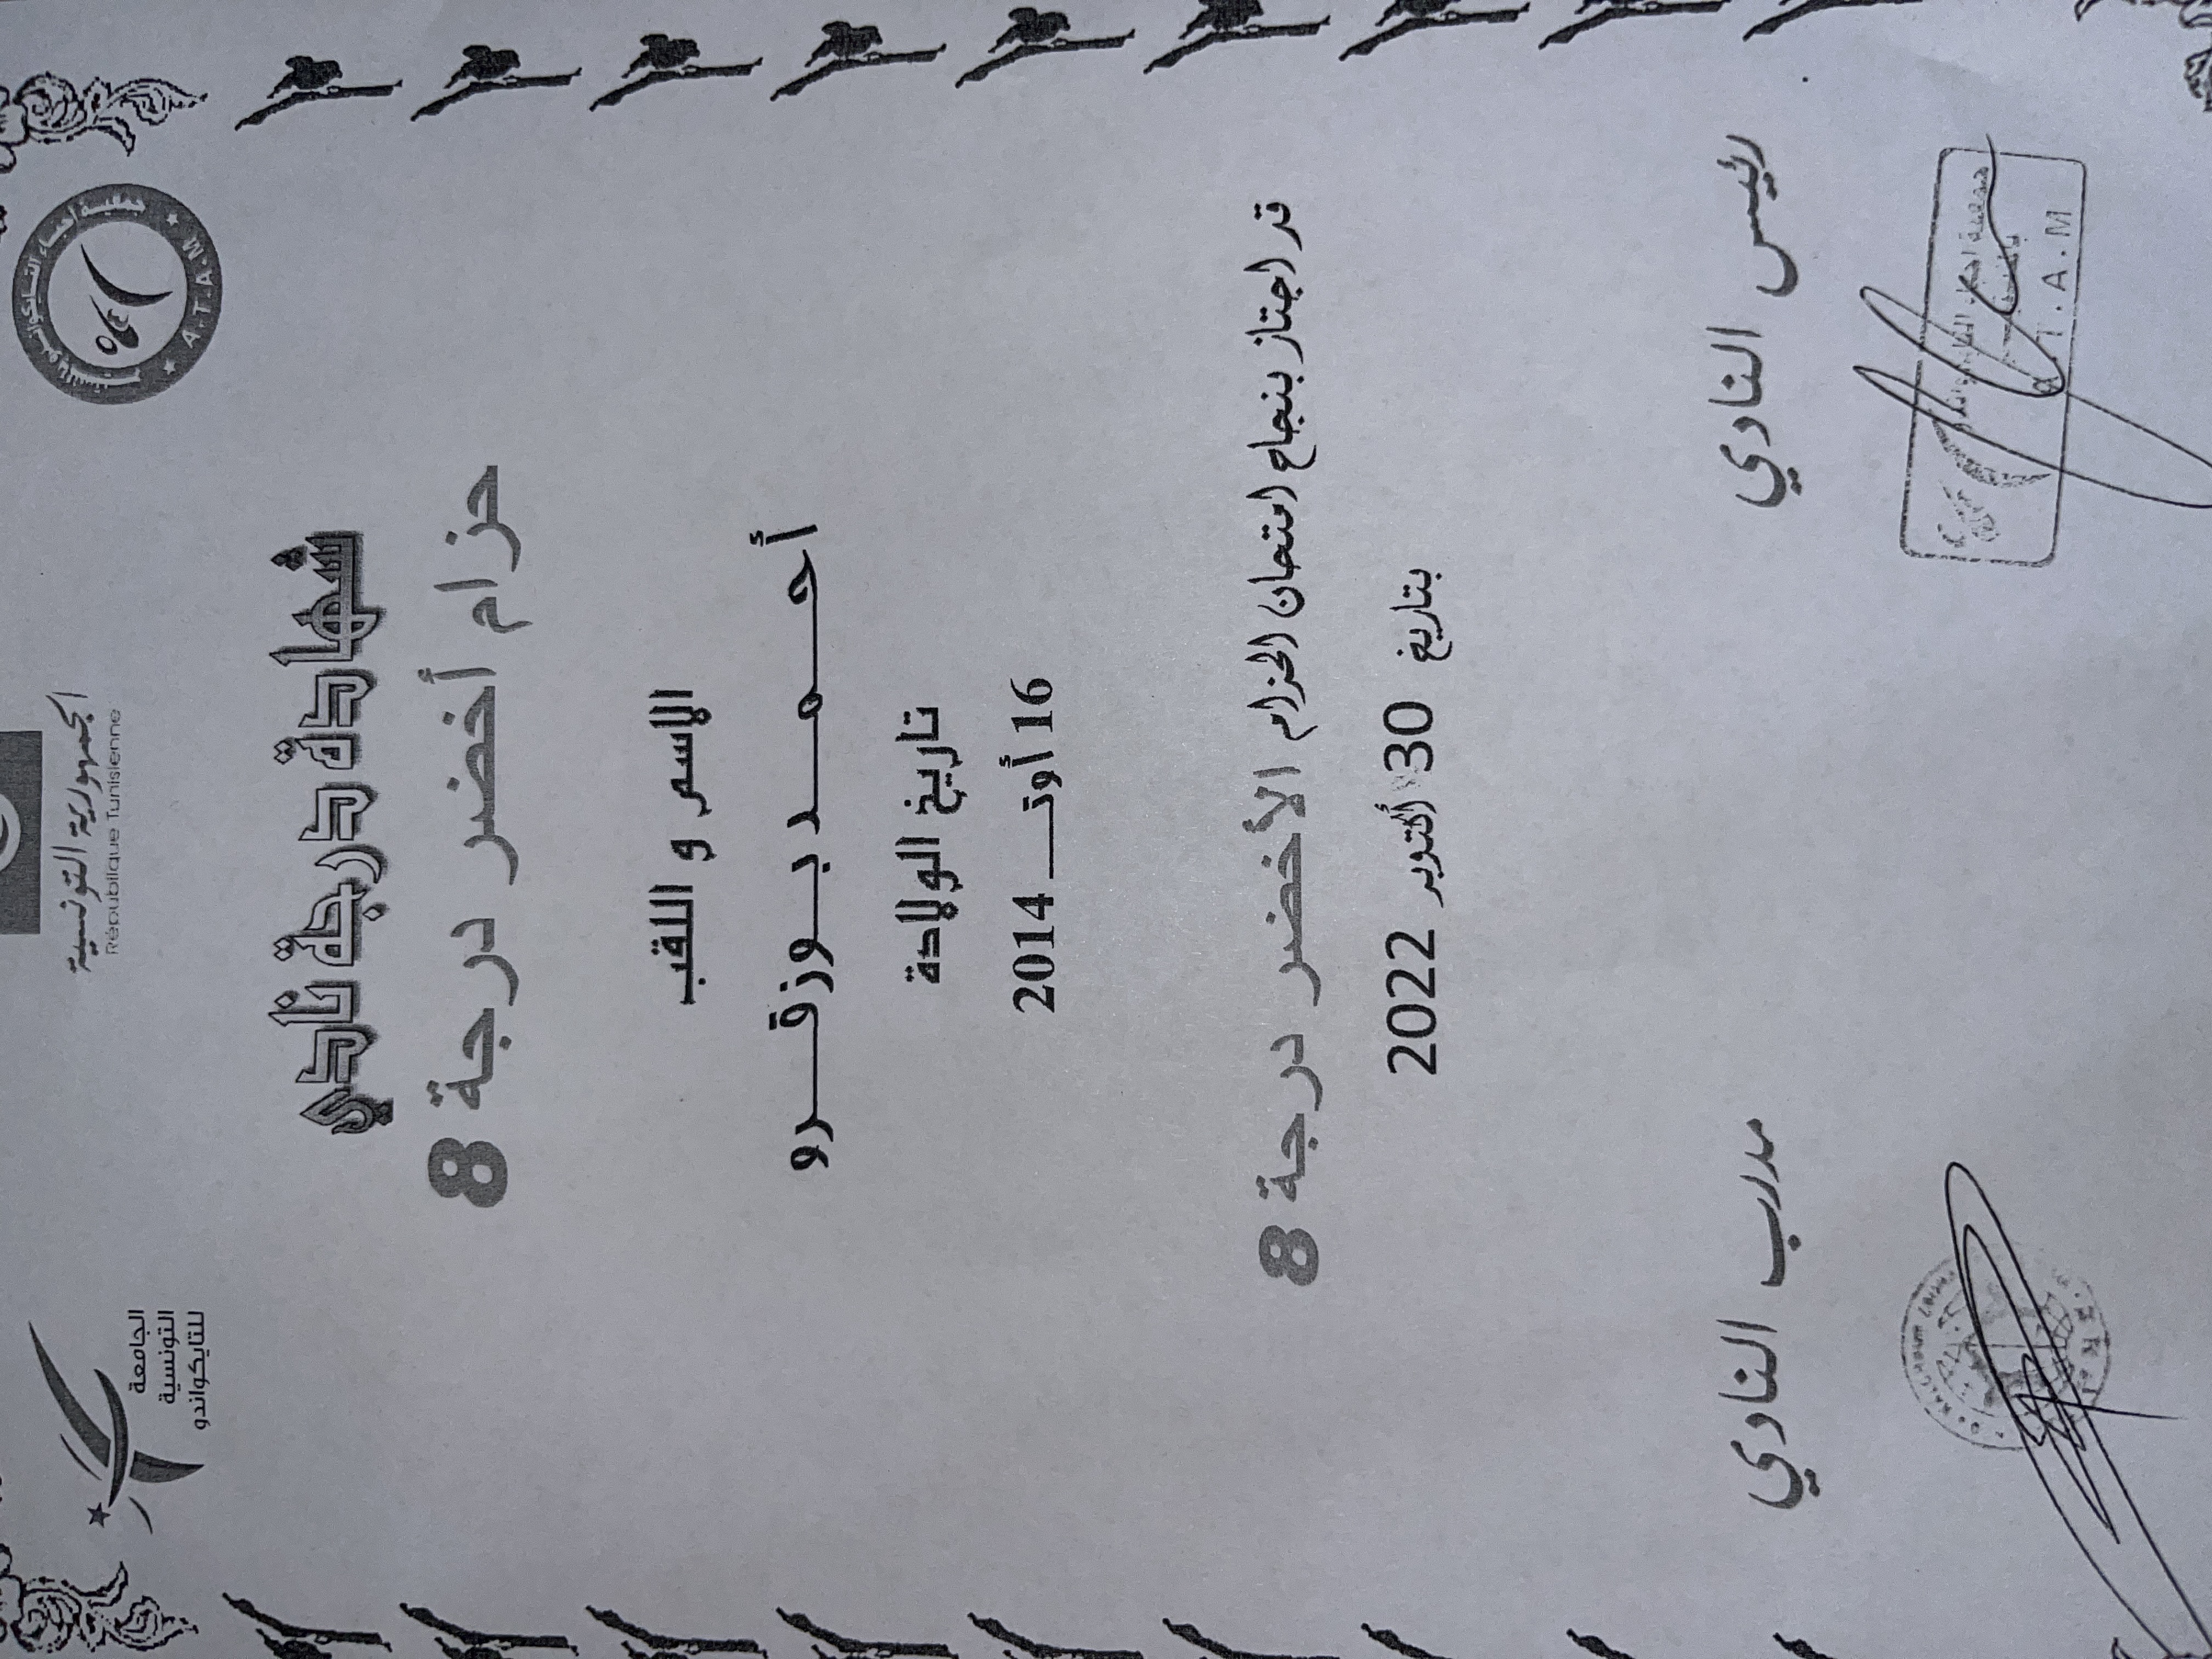 الجمهورية التونسية
République Tunisienne
جمعية أحباء التايكواندو
A.T.A.M
الجامعة
التونسية
للتايكواندو
شهادة درجة نادي
حزام أخضر درجة 8
الاسم و اللقب
أحـــمـــد بـــوزقـــرو
تاريخ الولادة
16 أوتـــ 2014
قد اجتاز بنجاح امتحان الحزام الأخضر درجة 8
بتاريخ 30 أكتوبر 2022
رئيس النادي
مدرب النادي
A.T.A.M